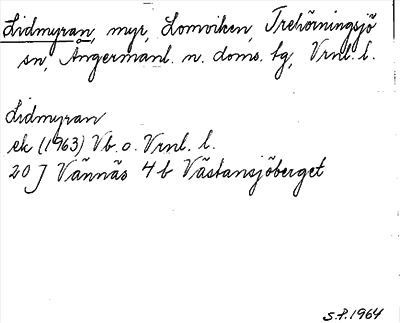 Lidmyran, myr, Lomviken, Trehörningsjö
sn, Ångermanl. n. doms. tg, Vrnl. l.
Lidmyran
ek (1963) Vb. o. Vrnl. l.
20 J Vännäs 4 b Västansjöberget
S.P. 1964